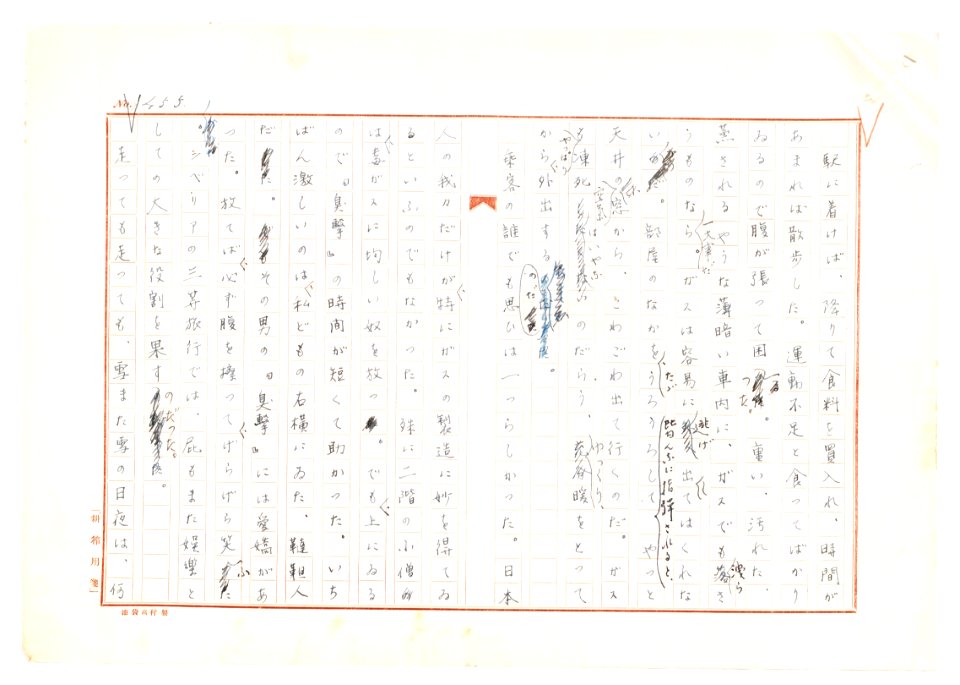 No. 655
駅に着けば、降りて食料を買入れ、時間が
あまれば散歩した。運動不足と食ってばかり
ゐるので腹が張って困った。重い、汚れた、
蒸されるやうな薄暗い車内に、ガスでも洩ら
うものなら大事だ。ガスは容易に逃げ出てはくれな
い。部屋のなかをうろうろして、やっと
皆んなに指弾されると、
天井の窓から、こわごわ出て行くのだ。ガス
も凍死はいやなのだらう、ゆっくり、暖をとって
やっぱり
から外出する
のだ。
乗客の誰でも思ひは一つらしかった。日本
人の我力だけが特にガスの製造に妙を得てゐ
るといふのでもなかった。殊に二階の小僧
は毒ガスに均しい奴を放つ。でも上にゐる
ので『臭撃』の時間が短くて助かった。いち
ばん激しいのは私どもの右横にゐた、韃靼人
だ。その男の『臭撃』には愛嬌があ
った。放てば必ず腹を撫ってげらげら笑ふ
。シベリアの三等旅行では、屁もまた娯楽と
しての大きな役割を果すのだった。
走っても走っても、雪また雪の日夜は、何
朝祐用箋